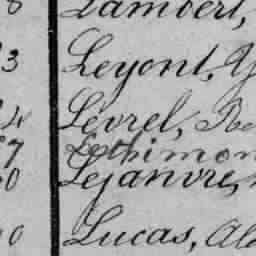 Lambert,
3 Leyont,
Levrel,
7 Lethimon
0 Lejanvre,
0 Lucas, Al